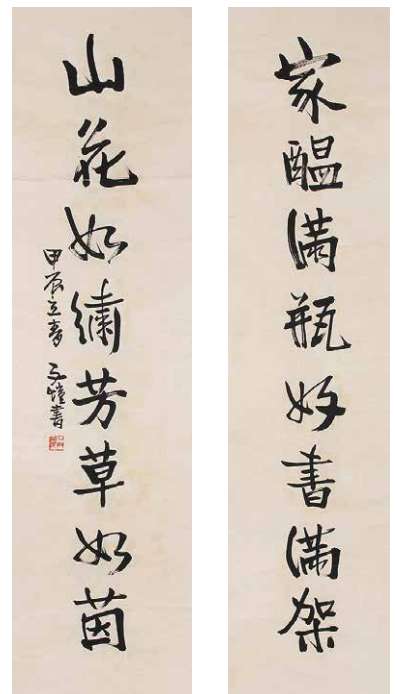 家醖满瓶好書满架
山花如繡芳草如茵
甲辰立春 文愷書